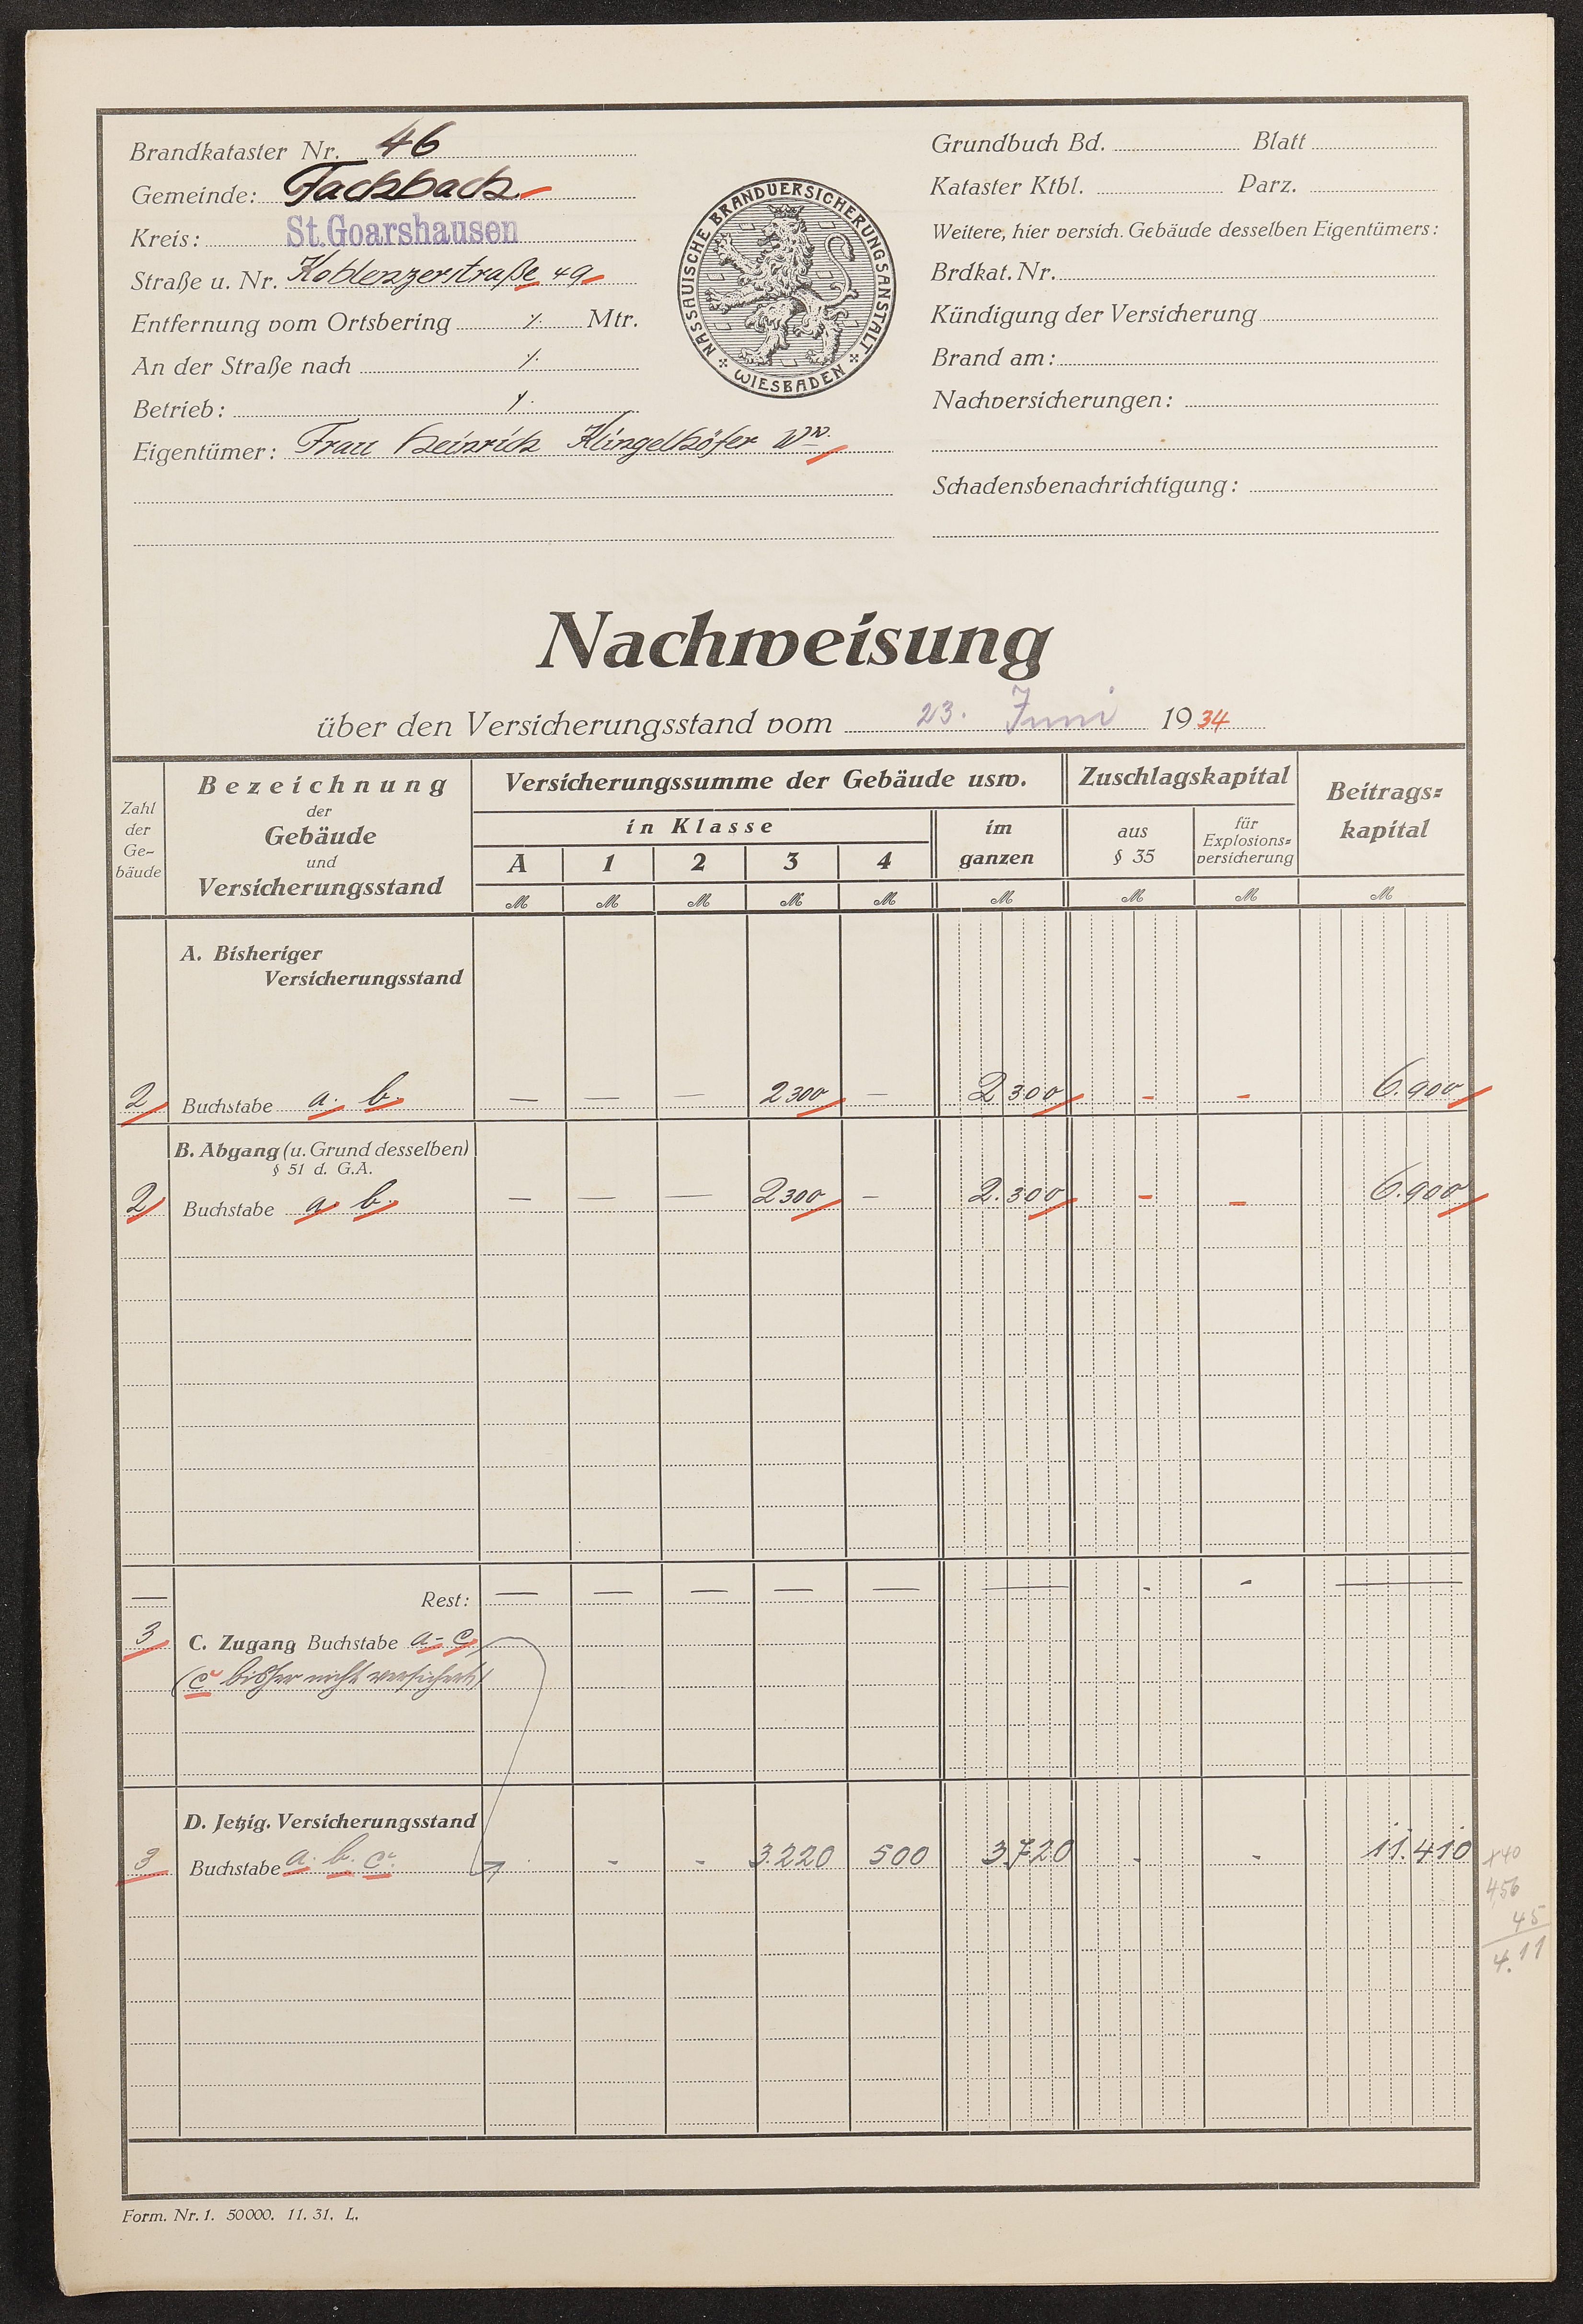 Brandkataster Nr. 46
Gemeinde: Fachbach
Kreis: St. Goarshausen
Straße u. Nr. Koblenzerstraße 49
Entfernung vom Ortsbering ⁒ Mtr.
An der Straße nach ⁒
Betrieb: ⁒
Eigentümer: Frau Heinrich Klingelhöfer Ww.
NASSAUISCHE BRANDVERSICHERUNGSANSTALT
WIESBADEN
Grundbuch Bd. Blatt
Kataster Ktbl. Parz.
Weitere, hier versich. Gebäude desselben Eigentümers:
Brdkat. Nr.
Kündigung der Versicherung
Brand am:
Nachversicherungen:
Schadensbenachrichtigung:
Nachweisung
über den Versicherungsstand vom 23. Juni 1934
Zahl der Ge- bäude
Bezeichnung der Gebäude und Versicherungsstand
Versicherungssumme der Gebäude usw.
in Klasse
A 1 2 3 4
im ganzen
Zuschlagskapital
aus § 35
für Explosions= versicherung
Beitrags= kapital
M M M M M M M M M
A. Bisheriger
Versicherungsstand
2 Buchstabe a. b. — — — 2300 — 2300 - - 6.900
B. Abgang (u. Grund desselben)
§ 51 d. G.A.
2 Buchstabe a. b. — — — 2300 — 2.300 - - 6.900
— Rest: — — — — — — - - —
3 C. Zugang Buchstabe a - c
(c bisher nicht versichert)
D. Jetzig. Versicherungsstand
3 Buchstabe a. b. c. - - - 3.220 500 3.720 - - 11.410
40
456
45
4.11
Form. Nr. 1. 50000. 11. 31. L.